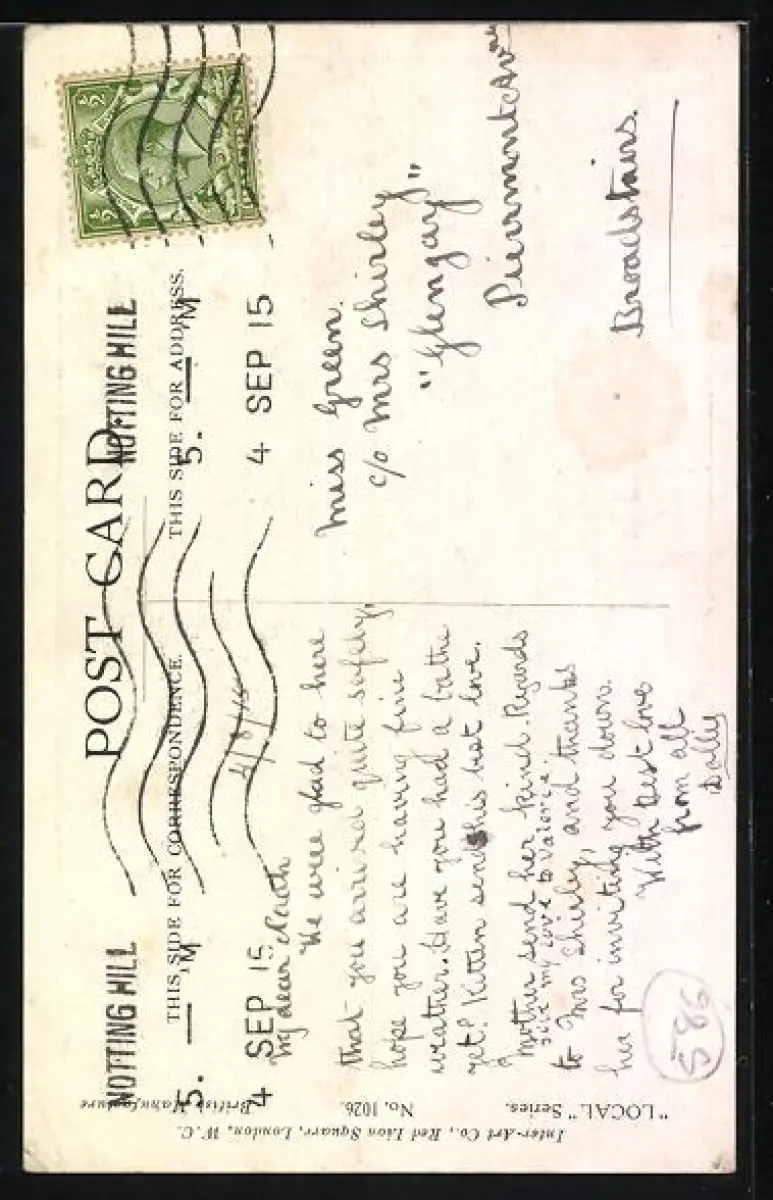 POST CARD
NOTTING HILL
NOTTING HILL
THIS SIDE FOR CORRESPONDENCE.
THIS SIDE FOR ADDRESS.
5. — M
5. — M
4 SEP 15
4 SEP 15
½ ½
My dear
We were glad to here
that you arrived quite safely,
hope you are having fine
weather. Have you had a bathe
yet? Kitten sends his best love.
Mother send her kind Regards
give my love to Valerie.
to Mrs Shirley, and thanks
her for inviting you down.
With best love
from all
Dolly
Miss Green.
c/o Mrs Shirley
"Glengay"
Pierrmont Av
Broadstairs.
586
"LOCAL" Series.
No. 1026.
British Manufacture
Inter-Art Co., Red Lion Square, London, W.C.